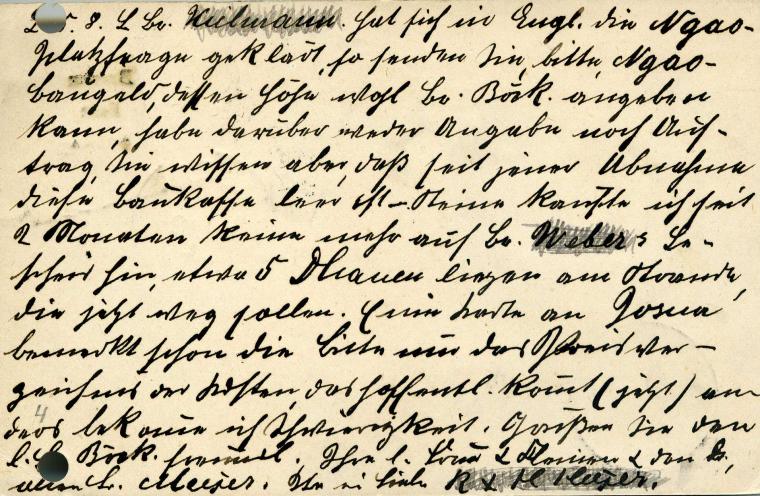 25. 8. L Br. Kuhlmann. Hat sich in Engl. die Ngao-
platzfrage geklärt, so senden Sie, bitte, Ngao-
baugeld, dessen Höhe wohl Br. Böck. angeben
kann, habe darüber weder Angabe noch Auf-
trag, Sie wissen aber, daß seit jener Abnahme
diese Baukasse leer ist – Steine kaufte ich seit
2 Monaten keine mehr auf Br. Webers Be-
scheid hin, etwa 5 Dhauen liegen am Strande,
die jetzt weg sollen. Eine Karte an Josua
bemerkt schon die Bitte um das Preisver-
zeichnis der Kosten das hoffentl. kommt (jetzt) an
ders bekomme ich Schwierigkeit. Grüßen Sie den
l. Br. Böck. freundl. Ihre l. Frau & Kleinen & den Br.
4
allen Br. Meijer. Ihr in Liebe